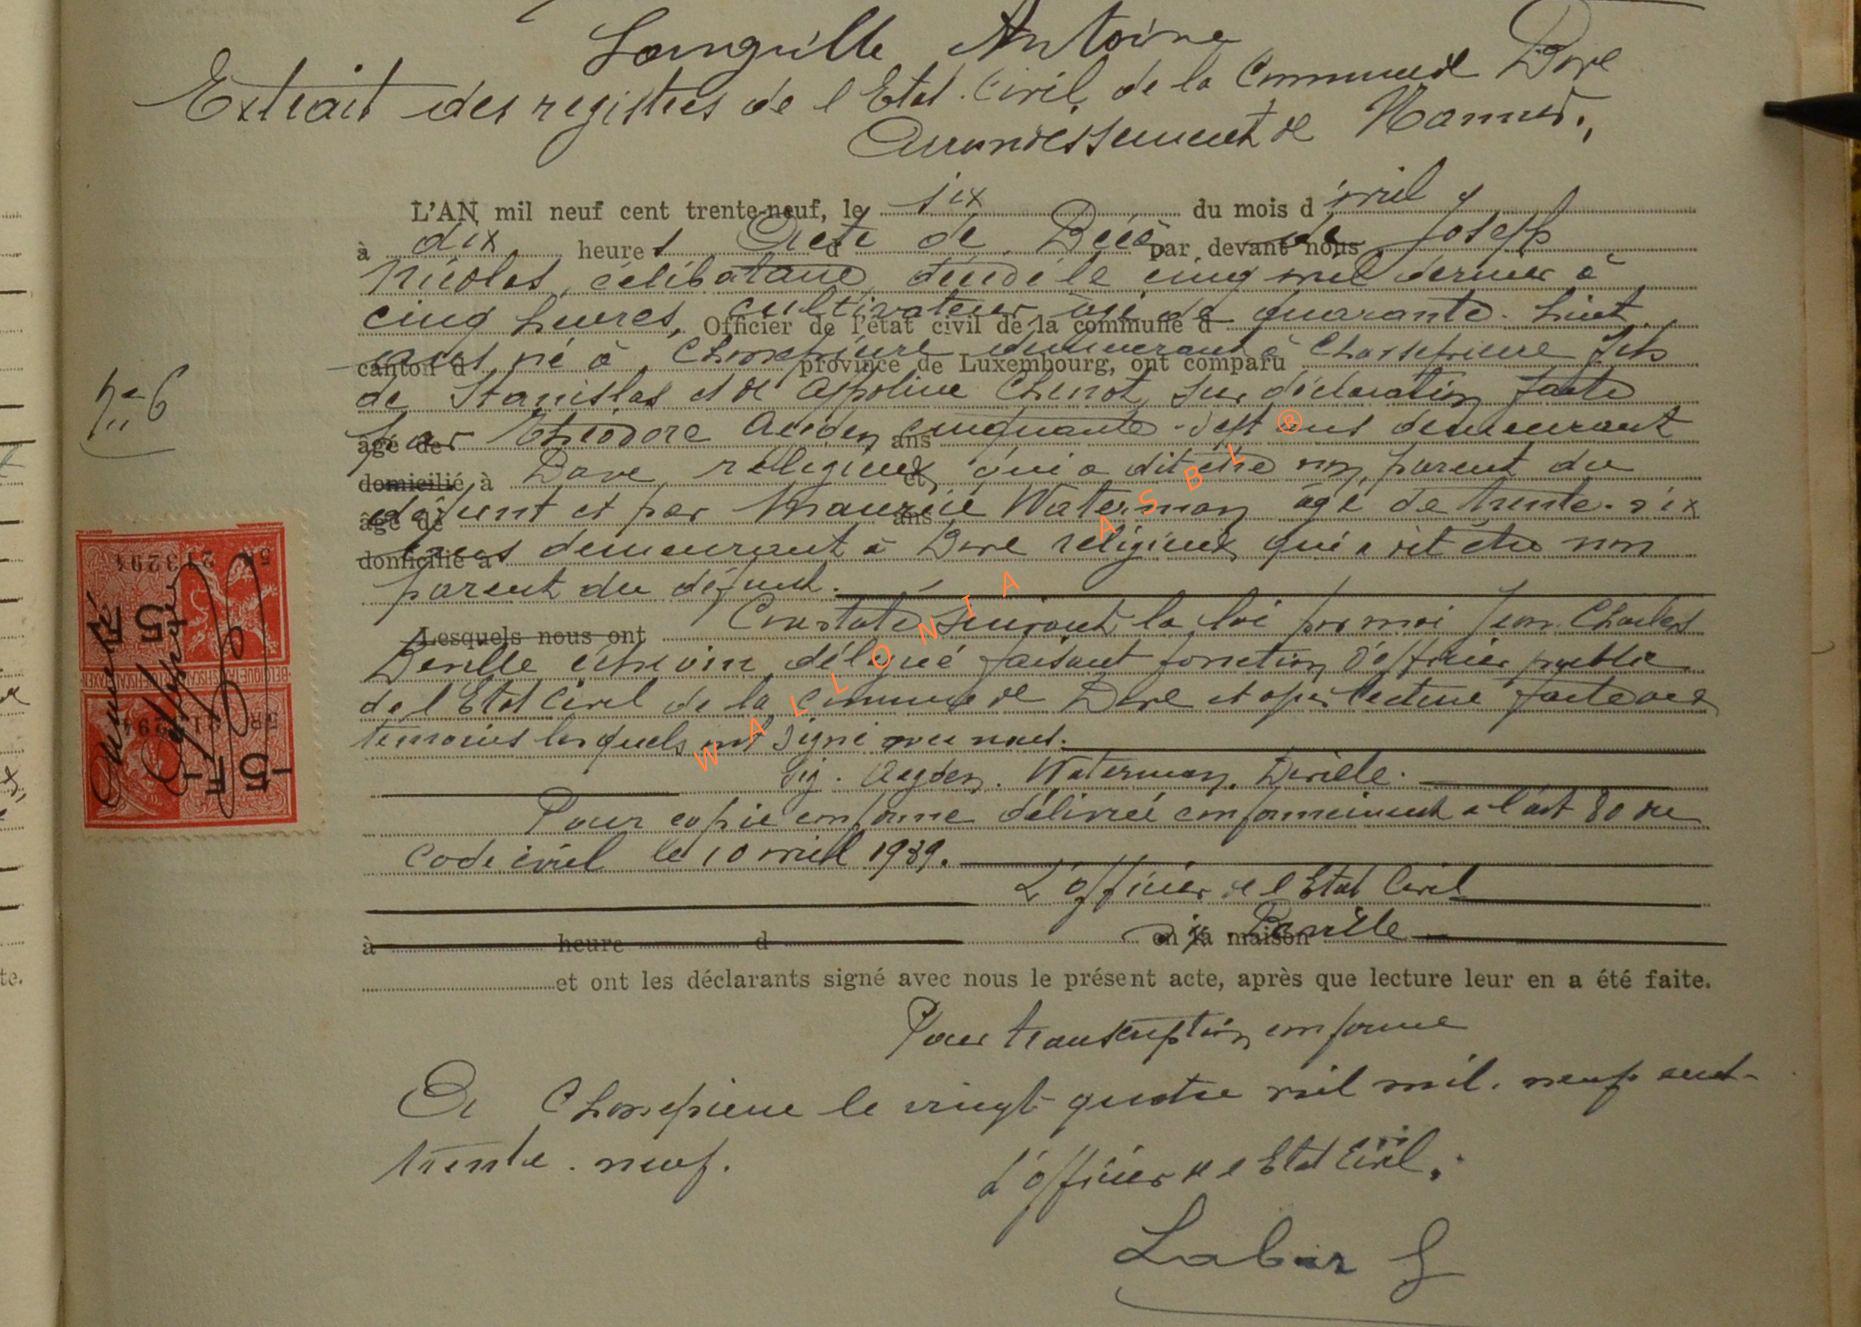 Antoine
Extrait des registres de l'Etat Civil de la Commune de Dave
Arrondissement de Namur.
L'AN mil neuf cent trente-neuf, le six du mois d'avril
à dix heures Acte de Décès de Joseph par devant nous
Nicolas, célibataire, décédé le cinq avril dernier à
cinq heures, cultivateur âgé de quarante-huit
Officier de l'état civil de la commune d
ans né à Chassepierre demeurant à Chassepierre fils
canton d province de Luxembourg, ont comparu
de Stanislas et de Appoline Chenot, sur déclaration faite
par Théodore cinquante-sept ans demeurant
âgé de ans
domicilié à Dave, religieux, qui a dit être non parent du
et
défunt et par Maurice Waterman âgé de trente-six
âgé de ans
ans demeurant à Dave religieux qui a dit être non
domicilié à
parent du défunt.
Lesquels nous ont Constaté suivant la loi par moi Jean Charles
Deville échevin délégué faisant fonction d'officier public
de l'Etat Civil de la commune de Dave et après lecture faite aux
témoins lesquels ont signé avec nous.
Sig. Waterman, Deville.
Pour copie conforme délivrée conformément à l'art 80 du
Code civil le 10 avril 1939.
L'officier de l'Etat Civil
à heure d en la maison Deville
et ont les déclarants signé avec nous le présent acte, après que lecture leur en a été faite.
Pour transcription conforme
A Chassepierre le vingt-quatre avril mil neuf cent
trente-neuf.
L'officier de l'Etat Civil,
Labar
N° 6
5 Fr
213294
WALLONIA ASBL ®
te.